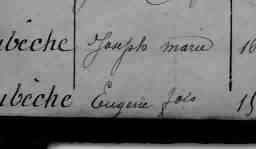 ubèche Joseph marie 16
ubèche Eugenie 15